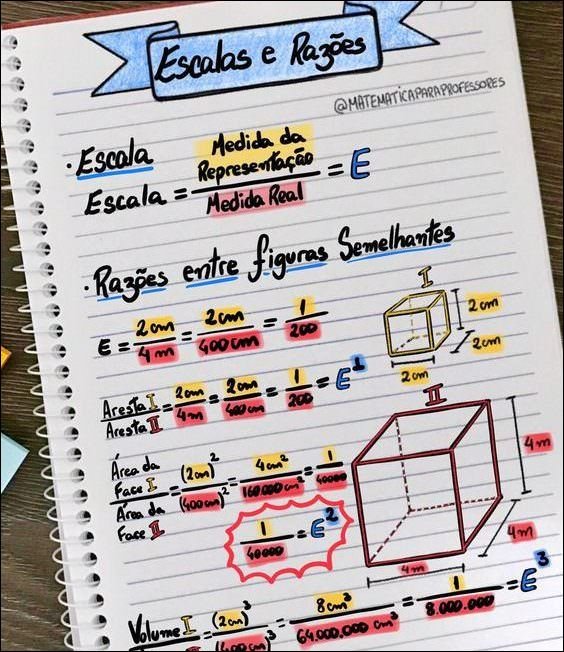 Escalas e Razões
@MATEMATICAPARAPROFESSORES
· Escala
Escala = Medida da Representação / Medida Real = E
· Razões entre figuras Semelhantes
E = 2cm / 4m = 2cm / 400cm = 1 / 200
I
2cm
2cm
2cm
Aresta I / Aresta II = 2cm / 4m = 2cm / 400cm = 1 / 200 = E¹
II
4m
4m
4m
Área da Face I / Área da Face II = (2cm)² / (400cm)² = 4cm² / 160.000cm² = 1 / 40000
1 / 40000 = E²
Volume I / = (2cm)³ / (400cm)³ = 8cm³ / 64.000.000 cm³ = 1 / 8.000.000 = E³